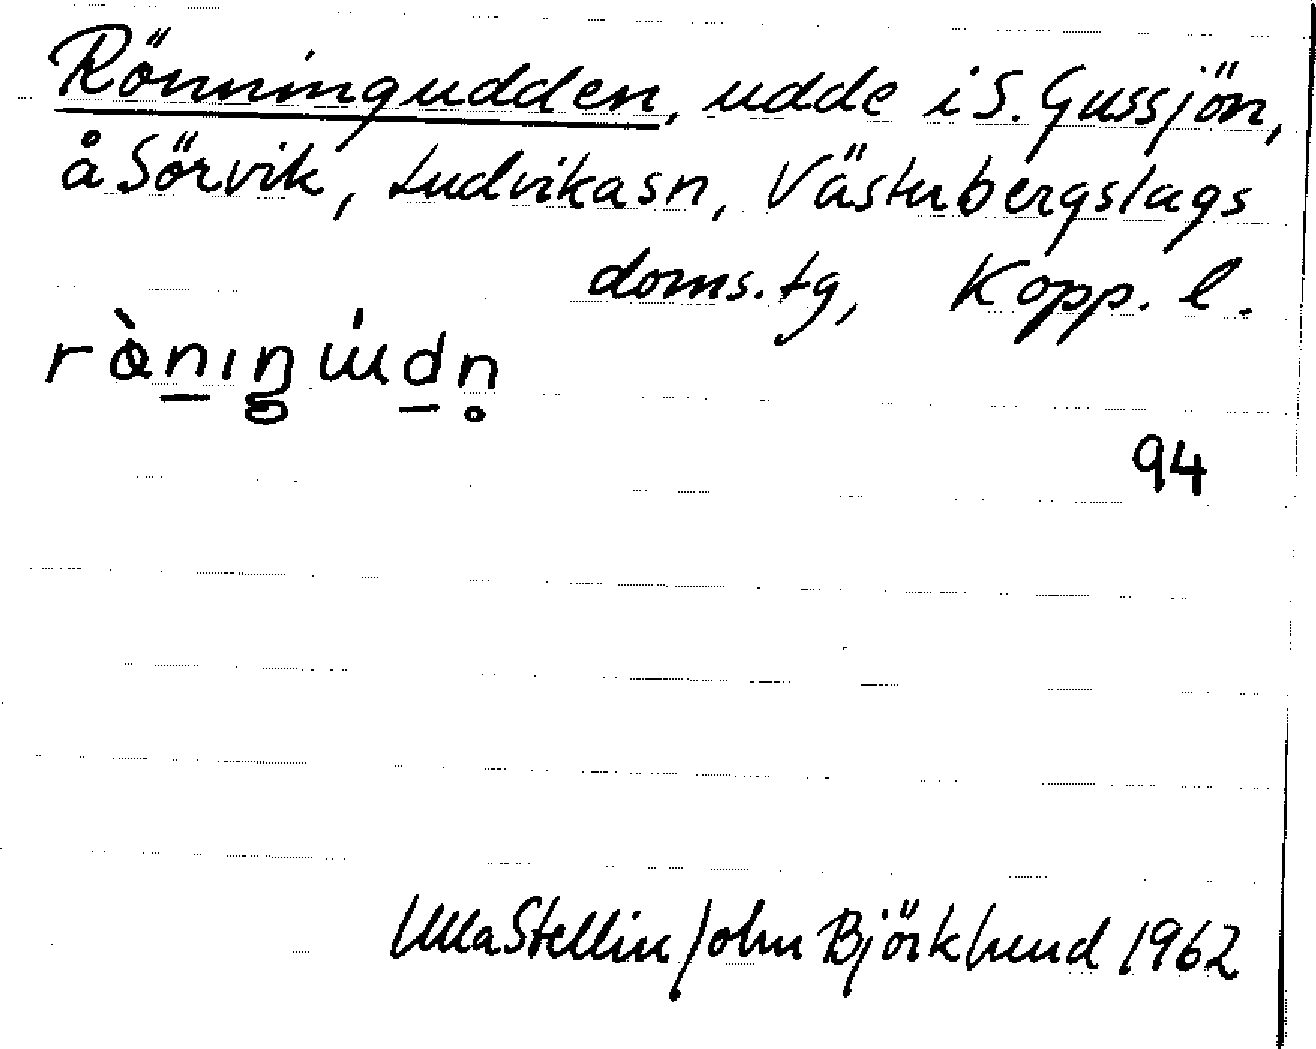 Rönningudden, udde i S. Gussjön,
å Sörvik, Ludvika sn, Västerbergslags
doms.tg, Kopp. l.
94
Ulla Stellin John Björklund 1962